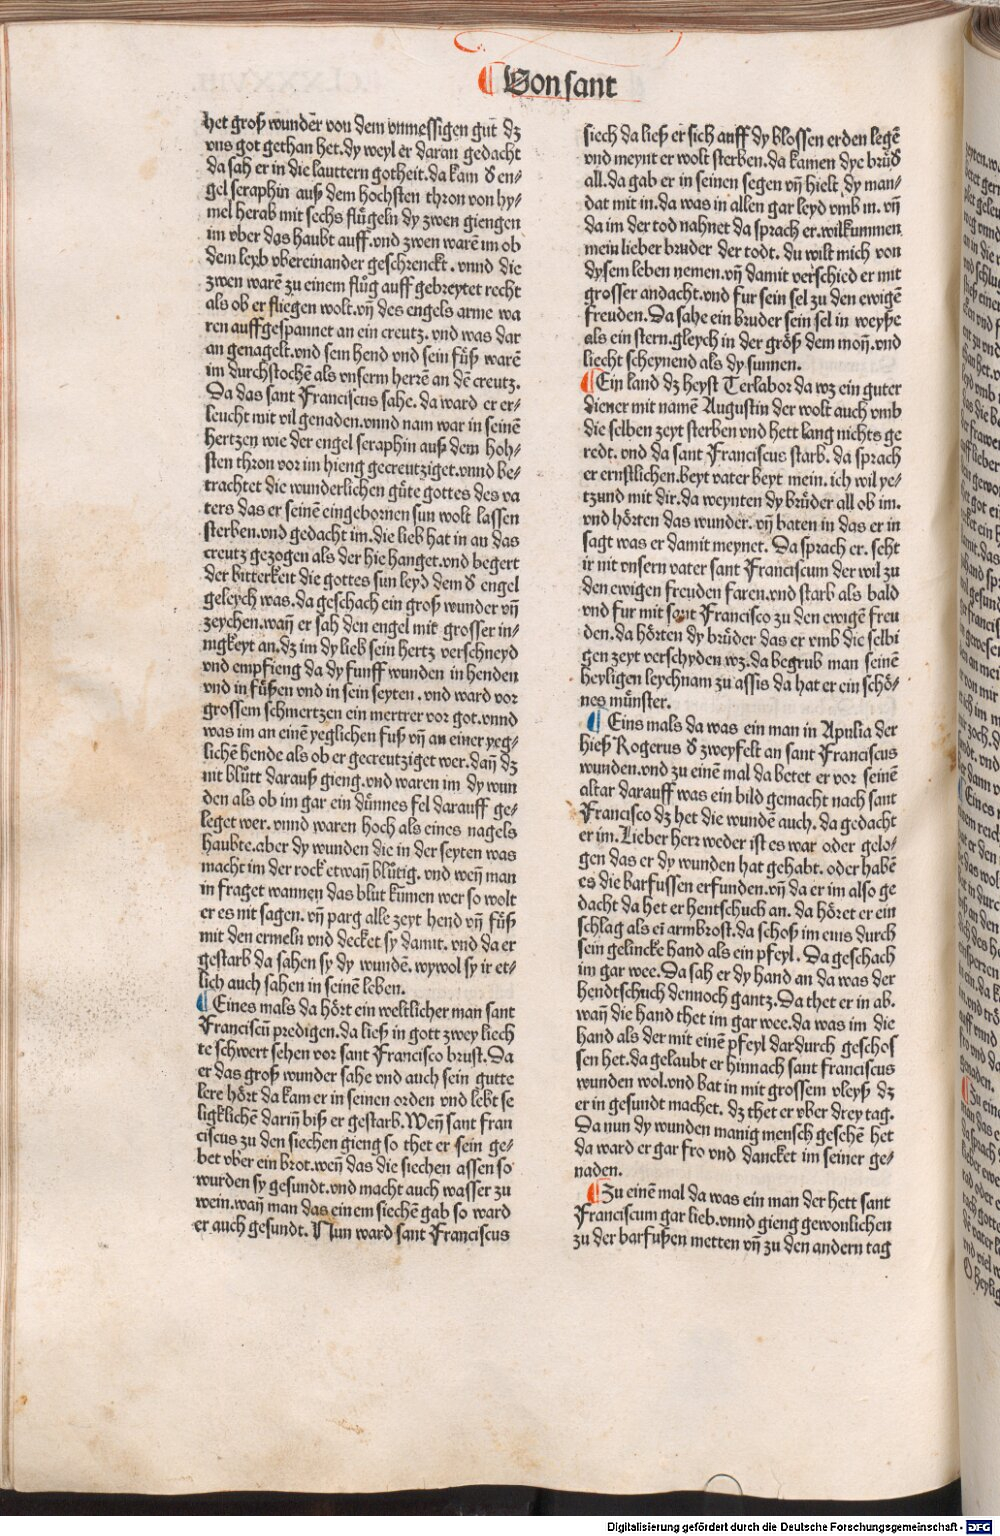 ¶ Von sant
het groß wunder von dem vnmessigen gut dz
vns got gethan het. dy weyl er daran gedacht
da sah er in die lauttern gotheit. da kam d̾ en⸗
gel seraphin auß dem hochsten thron von hy⸗
mel herab mit sechs flůgeln dy zwen giengen
im vber das haubt auff. vnd zwen warē im ob
dem leyb vbereinander geschrenckt. vnnd die
zwen warē zu einem flůg auff gebreytet recht
als ob er fliegen wolt. vn̄ des engels arme wa
ren auffgespannet an ein creutz. vnd was dar
an genagelt. vnd sein hend vnd sein fůß warē
im durchstochē als vnserm herrē an dē creutz.
Da das sant Franciscus sahe. da ward er er⸗
leucht mit vil genaden. vnnd nam war in seinē
hertzen wie der engel seraphin auß dem hoh⸗
sten thron vor im hieng gecreutziget. vnnd be⸗
trachtet die wunderlichen gůte gottes des va
ters das er seinē eingebornen sun wolt lassen
sterben. vnd gedacht im. die lieb hat in an das
creutz gezogen als der hie hanget. vnd begert
der bitterkeit die gottes sun leyd dem d̾ engel
geleych was. da geschach ein groß wunder vn̄
zeychen. wan̄ er sah den engel mit grosser in⸗
nigkeyt an. dz im dy lieb sein hertz verschneyd
vnd empfieng da dy funff wunden in henden
vnd in fůßen vnd in sein seyten. vnd ward vor
grossem schmertzen ein mertrer vor got. vnnd
was im an einē yeglichen fuß vn̄ an einer yeg⸗
lichē hende als ob er gecreutziget wer. dan̄ dz
nit blůtt darauß gieng. vnd waren im dy wun
den als ob im gar ein dünnes fel darauff ge⸗
leget wer. vnnd waren hoch als eines nagels
haubte. aber dy wunden die in der seyten was
macht im der rock etwan̄ blůtig. vnd wen̄ man
in fraget wannen das blut kům̄en wer so wolt
er es nit sagen. vn̄ parg alle zeyt hend vn̄ fůß
mit den ermeln vnd decket sy damit. vnd da er
gestarb da sahen sy dy wundē. wywol sy ir et⸗
lich auch sahen in seinē leben.
¶ Eines mals da hört ein weltlicher man sant
Franciscū predigen. da ließ in gott zwey liech
te schwert sehen vor sant Francisco brust. Da
er das groß wunder sahe vnd auch sein gutte
lere hört da kam er in seinen orden vnd lebt se
ligklichē darin̄ biß er gestarb. Wen̄ sant fran
ciscus zu den siechen gieng so thet er sein ge⸗
bet vber ein brot. wen̄ das die siechen assen so
wurden sy gesundt. vnd macht auch wasser zu
wein. wan̄ man das einem siechē gab so ward
er auch gesundt. Nun ward sant Franciscus
siech da ließ er sich auff dy blossen erden legē
vnd meynt er wolt sterben. da kamen dye brůd̾
all. da gab er in seinen segen vn̄ hielt dy man⸗
dat mit in. da was in allen gar leyd vmb in. vn̄
da im der tod nahnet da sprach er. wilkummen
mein lieber bruder der todt. du wilt mich von
dysem leben nemen. vn̄ damit verschied er mit
grosser andacht. vnd fur sein sel zu den ewigē
freuden. Da sahe ein bruder sein sel in weyße
als ein stern. gleych in der größ dem mon̄. vnd
liecht scheynend als dy sunnen.
¶ Ein land dz heyst Terlabor da wz ein guter
diener mit namē Augustin der wolt auch vmb
die selben zeyt sterben vnd hett lang nichts ge
redt. vnd da sant Franciscus starb. da sprach
er ernstlichen. beyt vater beyt mein. ich wil ye⸗
tzund mit dir. da weynten dy brůder all ob im.
vnd hörten das wunder. vn̄ baten in das er in
sagt was er damit meynet. Da sprach er. seht
ir nit vnsern vater sant Franciscum der wil zu
den ewigen freuden faren. vnd starb als bald
vnd fur mit sant Francisco zu den ewigē freu
den. da hörten dy brůder das er vmb die selbi
gen zeyt verschyden wz. da begrub man seinē
heyligen leychnam zu assis da hat er ein schö⸗
nes münster.
¶ Eins mals da was ein man in Apulia der
hieß Rogerus d̾ zweyfelt an sant Franciscus
wunden. vnd zu einē mal da betet er vor seinē
altar darauff was ein bild gemacht nach sant
Francisco dz het die wundē auch. da gedacht
er im. Lieber herr weder ist es war oder gelo⸗
gen das er dy wunden hat gehabt. oder habē
es die barfussen erfunden. vn̄ da er im also ge
dacht da het er hentschuch an. da höret er ein
schlag als eī armbrost. da schoß im eins durch
sein gelincke hand als ein pfeyl. Da geschach
im gar wee. Da sah er dy hand an da was der
hendtschuch dennoch gantz. Da thet er in ab.
wan̄ die hand thet im gar wee. da was im die
hand als der mit einē pfeyl dardurch geschos
sen het. da gelaubt er hinnach sant franciscus
wunden wol. vnd bat in mit grossem vleyß dz
er in gesundt machet. dz thet er vber drey tag.
Da nun dy wunden manig mensch gesehē het
da ward er gar fro vnd dancket im seiner ge⸗
naden.
¶ Zu einē mal da was ein man der hett sant
Franciscum gar lieb. vnnd gieng gewonlichen
zu der barfußen metten vn̄ zu den andern tag
Digitalisierung gefördert durch die Deutsche Forschungsgemeinschaft - DFG